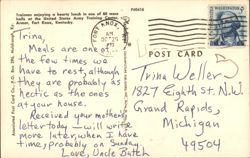 Trainees enjoying a hearty lunch in one of 88 mess
halls at the United States Army Training Center,
Armor, Fort Knox, Kentucky.
P60416
POST CARD
Trina,
Meals are one of
the few times we
have to rest, although
they are probably as
hectic as the ones
at your house.
Received your mothers
letter today - will write
more later, when I have
time, probably on Sunday.
Love, Uncle Butch
Trina Weller
1827 Eighth St. N.W.
Grand Rapids,
Michigan
49504